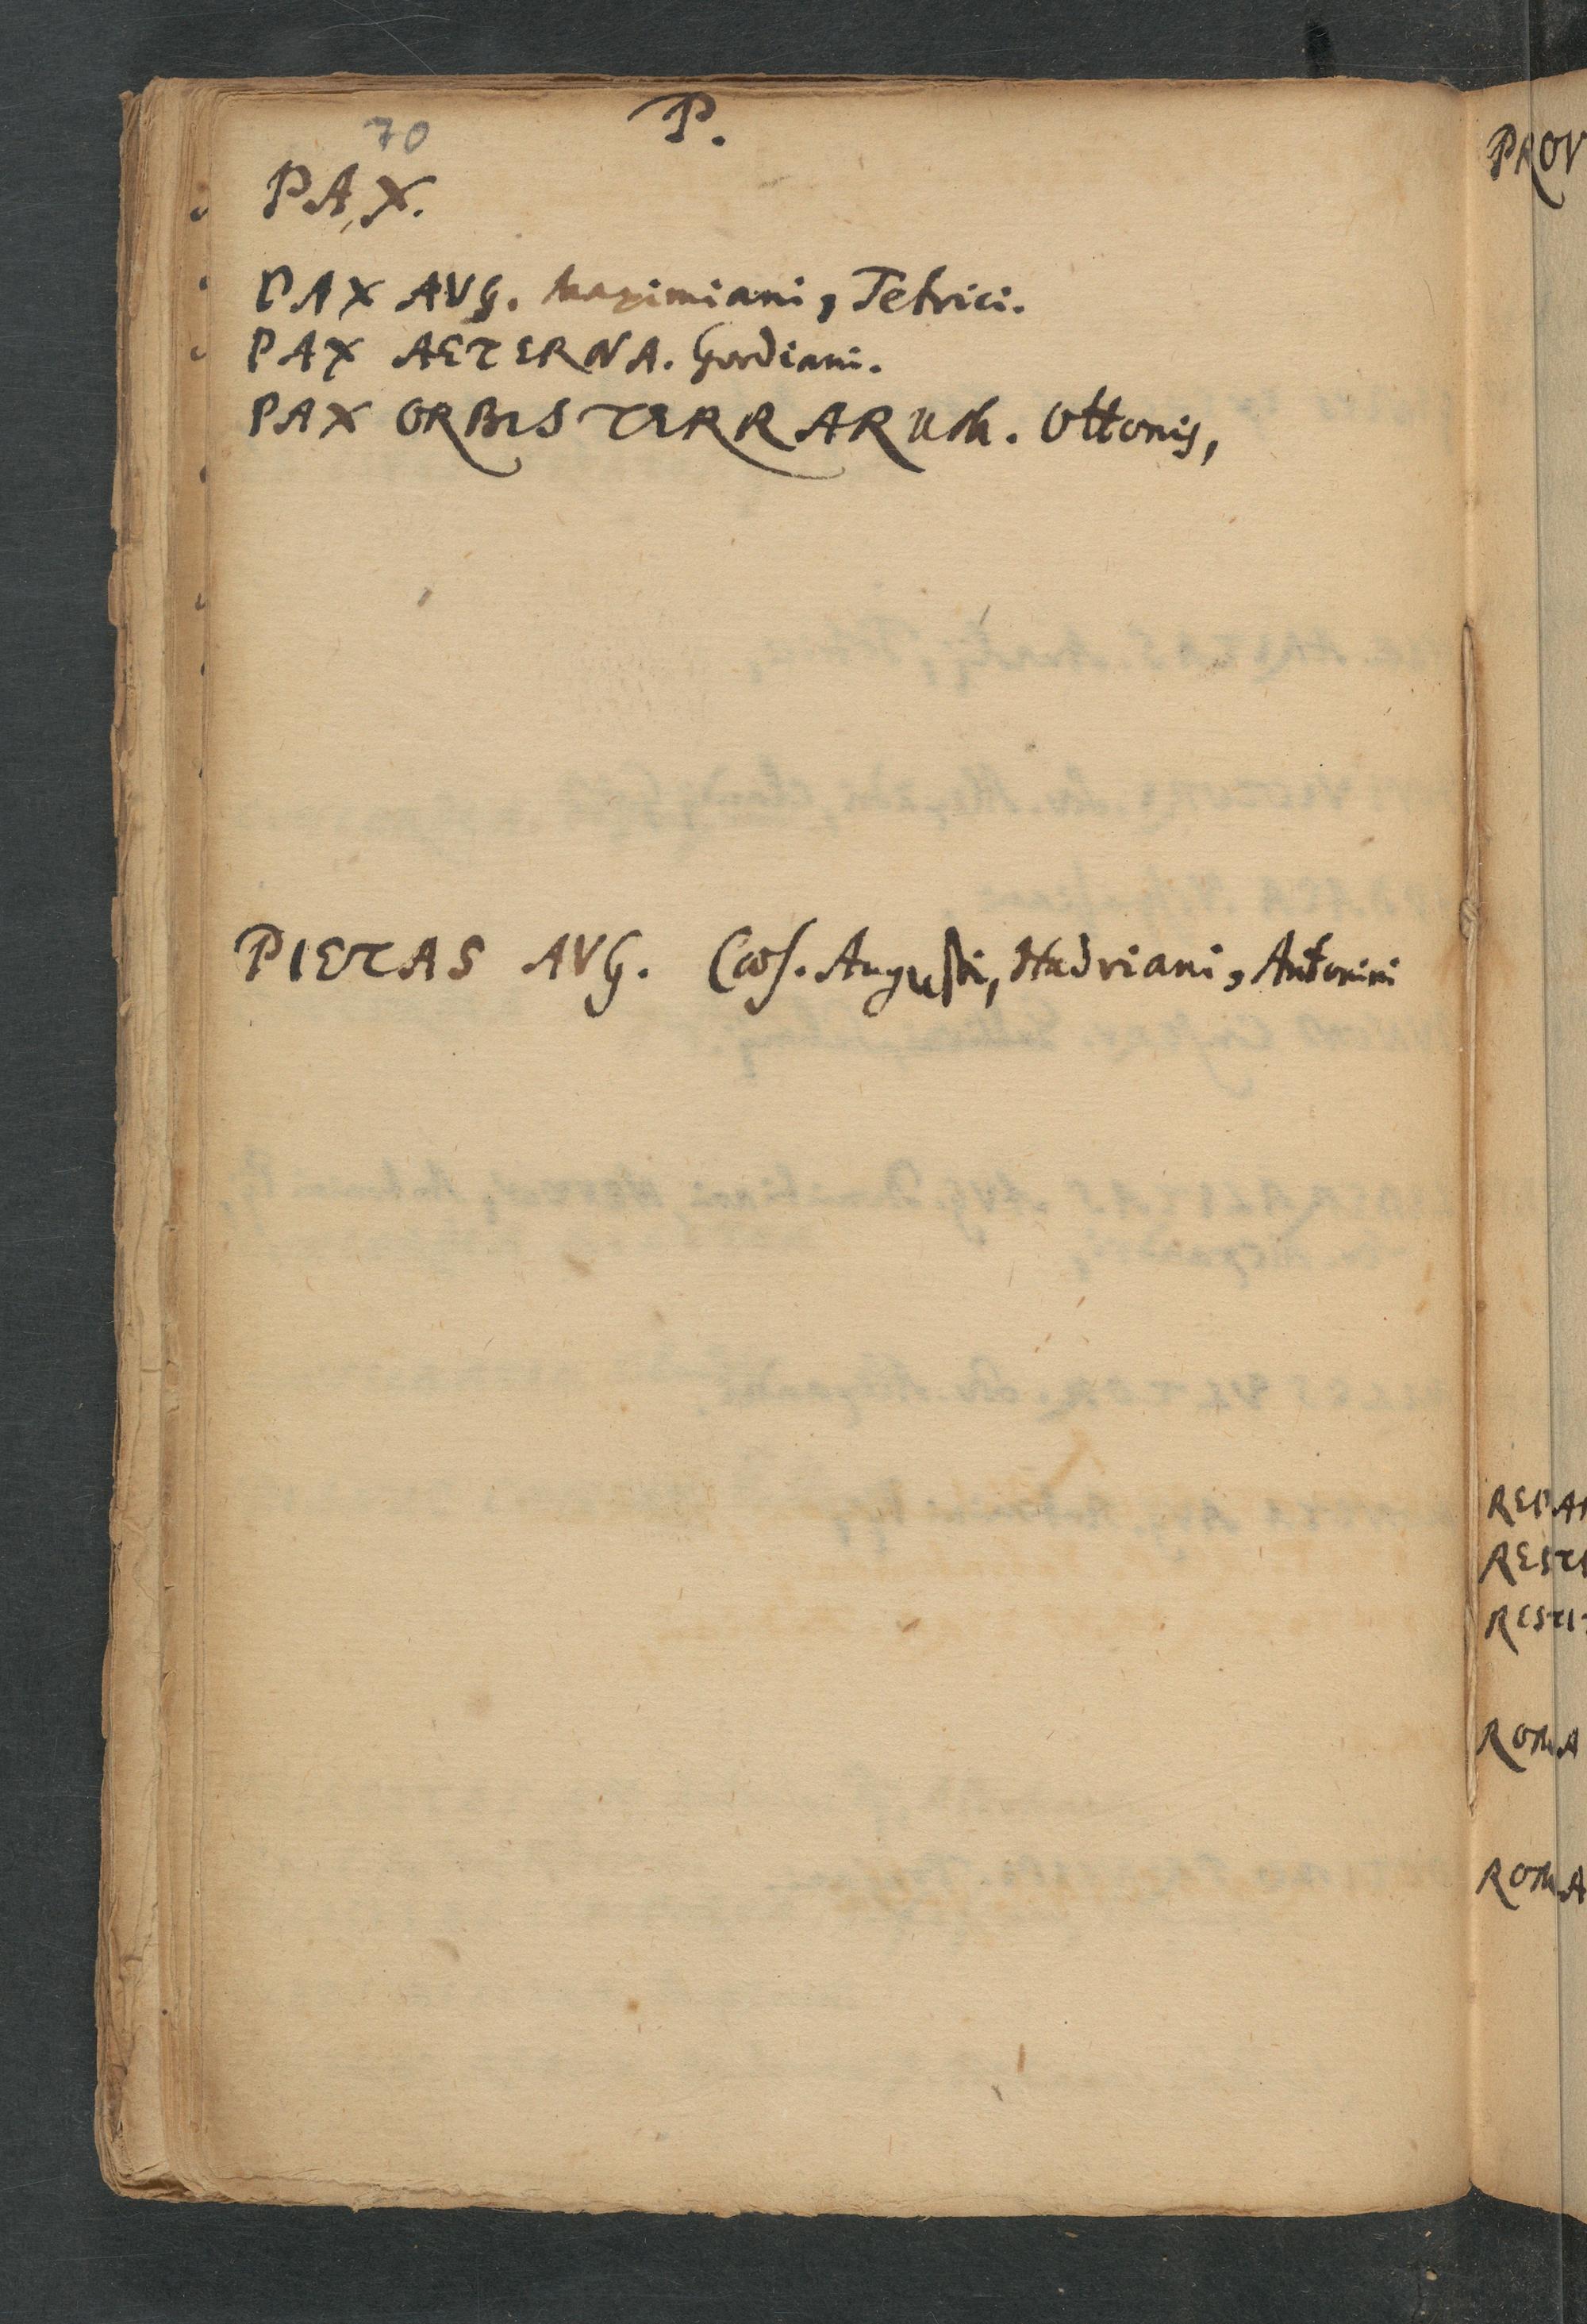 70 P.
PAX.
PAX AVG. Maximiani, Tetrici.
PAX AETERNA. Gordiani.
PAX ORBIS TERRARUM. Ottonis,
PIETAS AVG. Cæs. Augusti, Hadriani, Antonini
PROV
REPA
RESTI
RESTIT
ROMA
ROMA